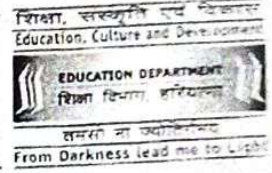 शिक्षा, संस्कृति एवं विकास
Education, Culture and Development
EDUCATION DEPARTMENT
शिक्षा विभाग, हरियाणा
तमसो मा ज्योतिर्गमय
From Darkness lead me to Light